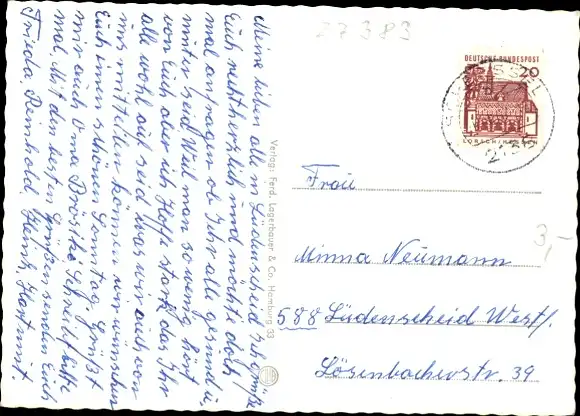 27383
Meine lieben alle in Lüdenscheid Ich grüße
Euch recht herzlich und möchte doch
mal anfragen ob Ihr alle gesund u
munter seid Weil man so wenig hört
von Euch aber ich Hoffe stark das Ihr
alle wohl auf seid was wir auch von
uns mitteilen können wir wünschen
Euch einen schönen Sonntag. Grüßt
mir auch Oma Schreibt bitte
mal. Mit den besten Grüßen senden Euch
Frieda Reinhold, Heinz, Hartmut.
Verlag: Ferd. Lagerbauer & Co. Hamburg 33
DEUTSCHE BUNDESPOST
20
LORSCH/HESSEN
Frau
3,-
Minna Neumann
588 Lüdenscheid Westf.
Lösenbacherstr. 39